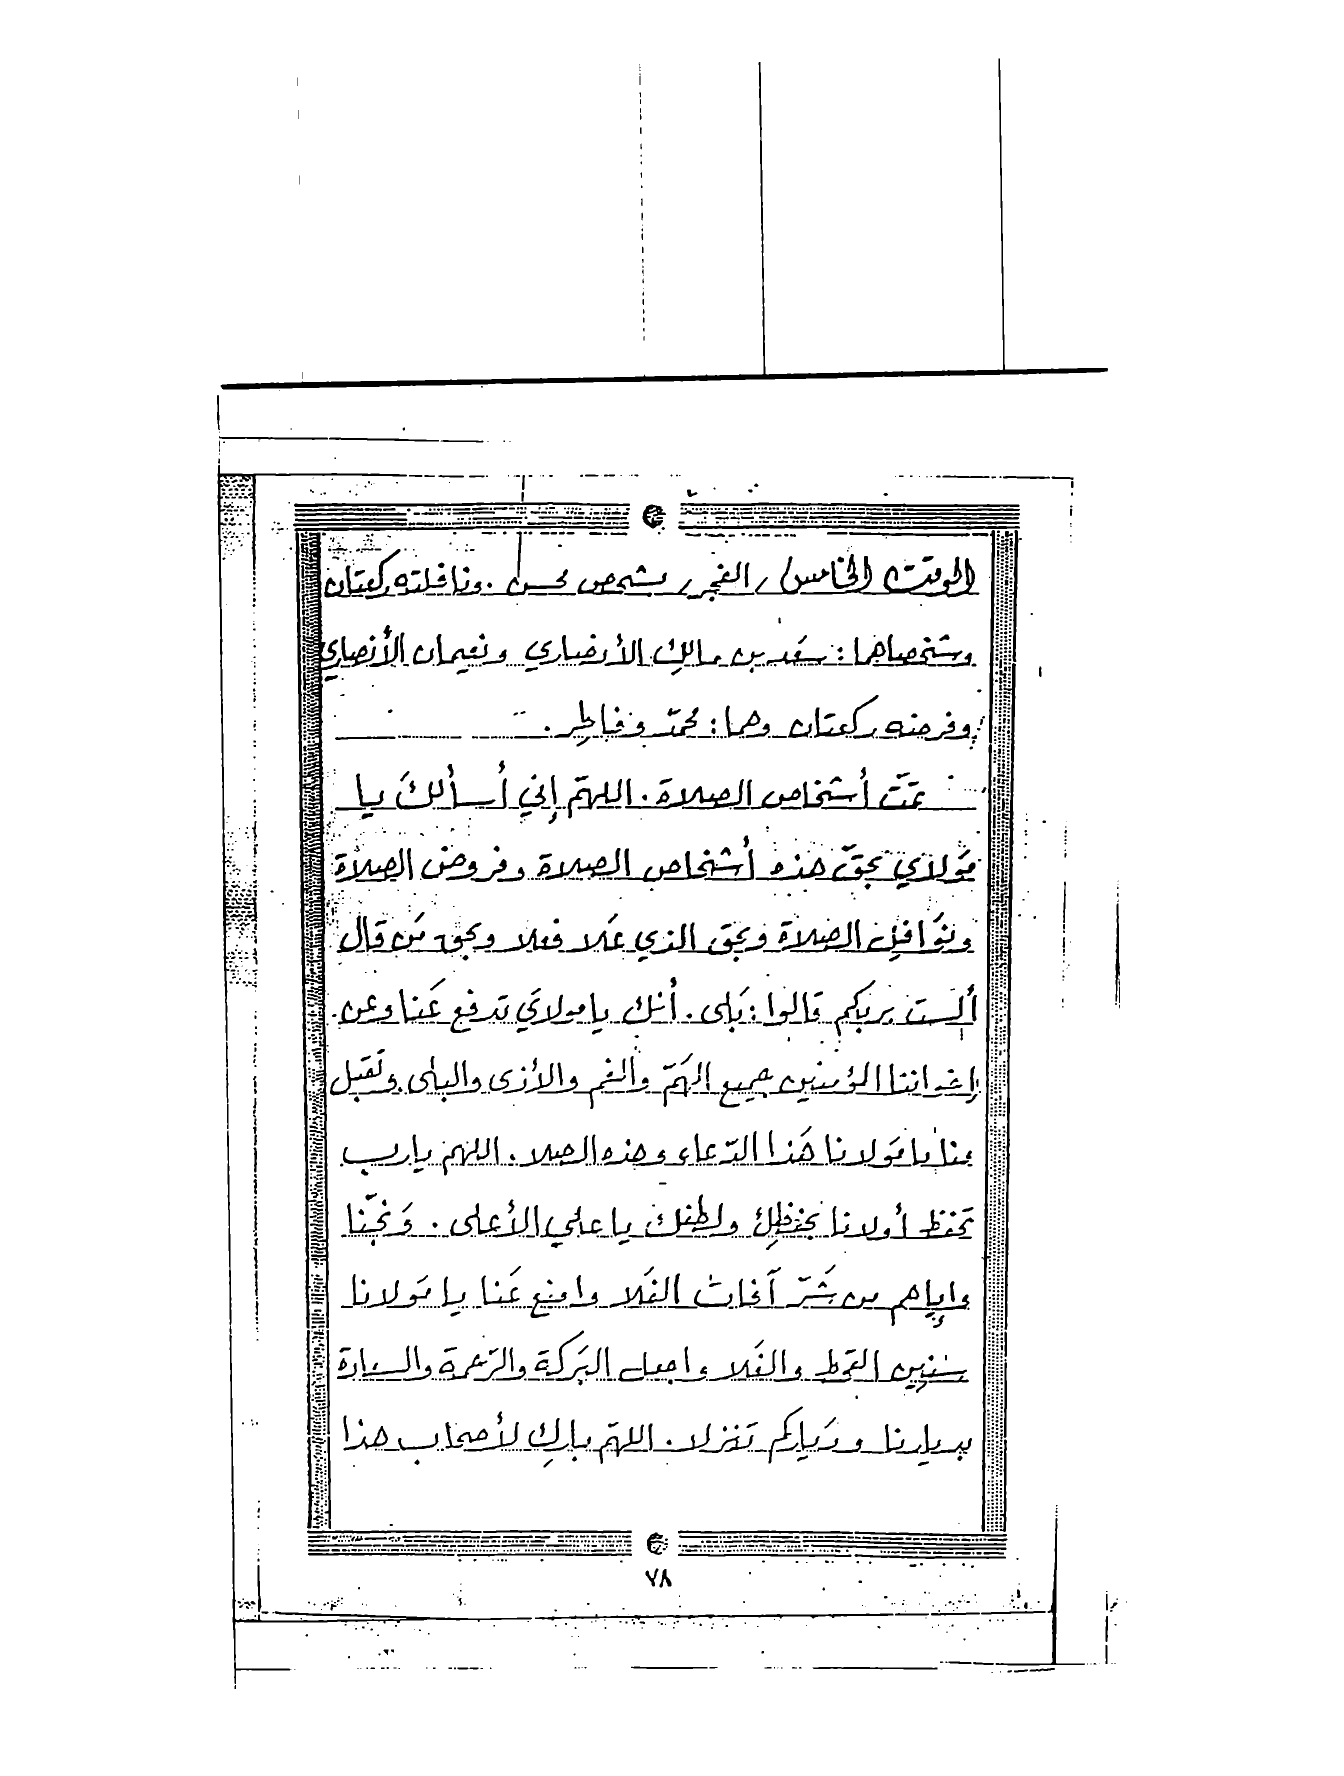 الوقت الخامس / الفجر / بشخص محسن . ونافلته ركعتان
وشخصاها : سعد بن مالِك الأنصاري ونعيمان الأنصاري
وفرضه ركعتان وهما : محمّد وفاطِر .
تمّت أشخاص الصلاة . اللهمّ إني أسألكَ يا
مَولاي بحقّ هذه أشخاص الصلاة وفروض الصلاة
ونوَافِل الصلاة وبحق الذي عَلا فعلا وبحق مَن قال
ألست بربكم قالوا : بَلى . أنك يا مولايَ تدفع عَنا وعن
إخواننا المؤمنين جميع الهَمّ والغم والأذى والبلى وتَقبل
منا يا مَولانا هَذا الدّعاء وهذه الصلا . اللهم يا رب
تحفظ أولانا بحفظِك ولطفك يا علي الأعلى . وَنجّنا
وإياهم من شَرّ آفات الفَلا وامنع عَنا يا مَولانا
سنين القحط والغَلا واجعل البَركة والرّحمة والسادة
بديارنا ودَياركم تَنزلا . اللهمّ بارِك لأصحاب هذا
٧٨